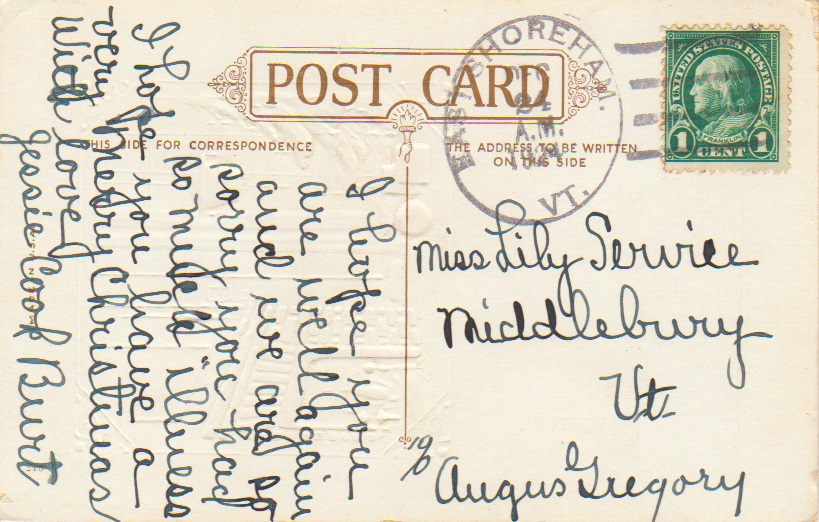 POST CARD
THIS SIDE FOR CORRESPONDENCE
THE ADDRESS TO BE WRITTEN
ON THIS SIDE
EAST SHOREHAM.
24
A.M.
VT.
UNITED STATES POSTAGE
FRANKLIN
1 CENT 1
I hope you
are well again
and we are so
sorry you had
so much illness
I hope you have a
very merry Christmas
With love
Jessie Cook Burt
Miss Lily Service
Middlebury
Vt
c/o
Augus Gregory